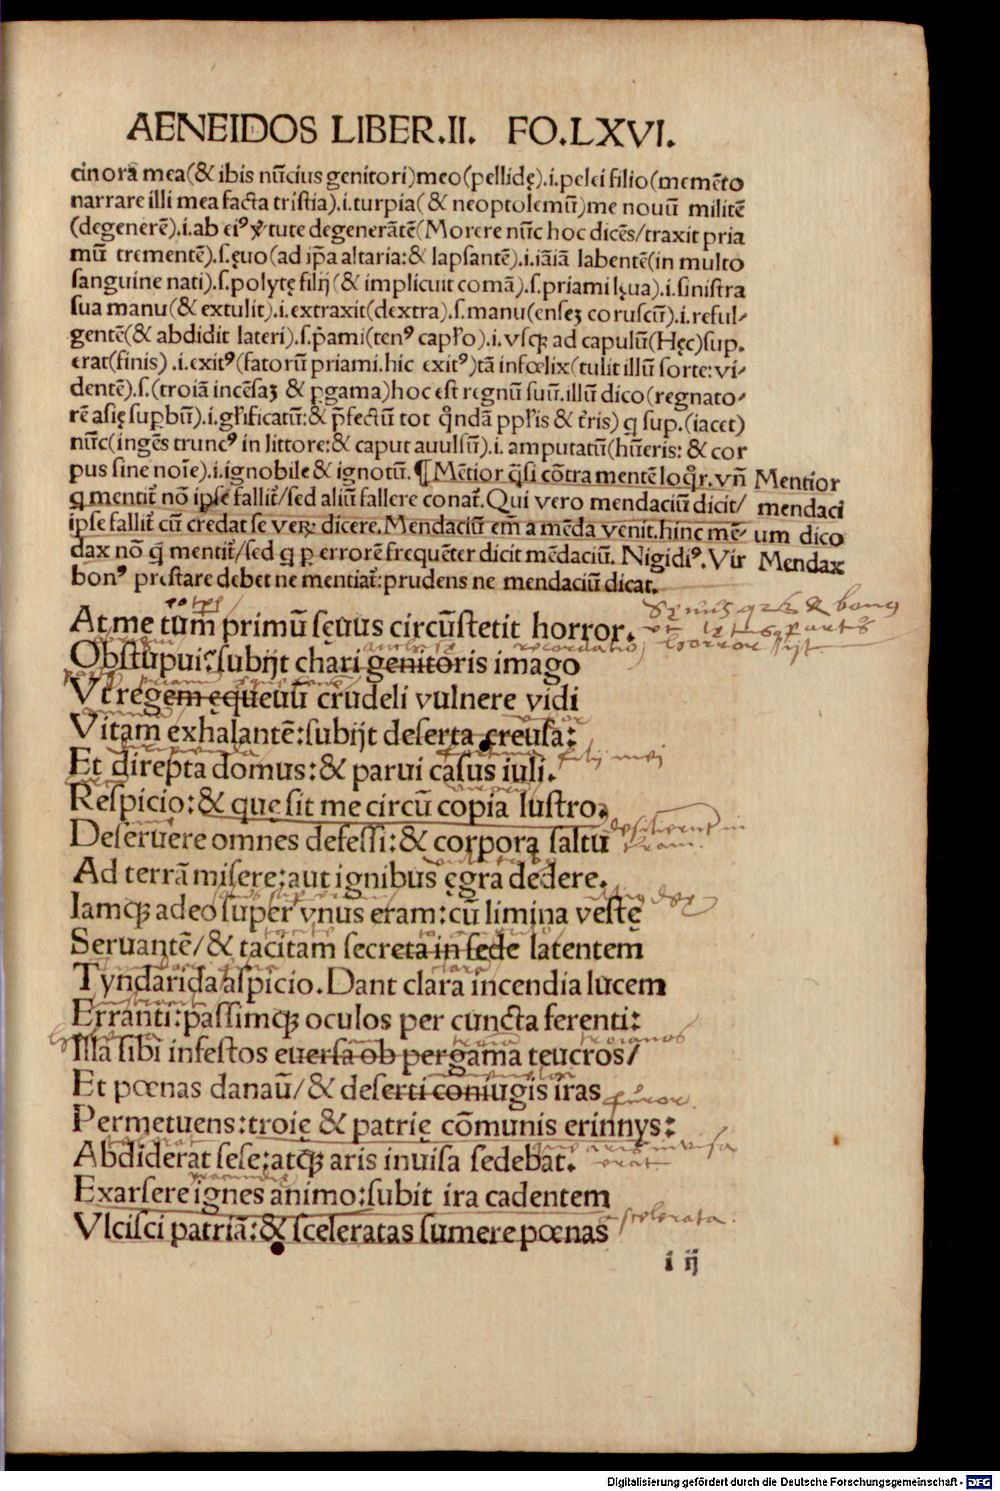 AENEIDOS LIBER.II. FO.LXVI.
cinorā mea(& ibis nūcius genitori)meo(pellidę).i.pelei filio(memēto
narrare illi mea facta tristia).i.turpia(& neoptolemū)me nouū militē
(degenerē).i.ab eiꝰ tute degenerātē(Morere nūc hoc dicēs/traxit pria
mū trementē).s.ęuo(ad ip̄a altaria:& lapsantē).i.iāiā labentē(in multo
sanguine nati).s.polytę filij(& implicuit comā).s.priami lęua).i.sinistra
sua manu(& extulit).i.extraxit(dextra).s.manu(enseꝫ coruscū).i.reful-
gentē(& abdidit lateri).s.p̄ami(tenꝰ capło).i.vsqꝫ ad capulū(Hęc)sup.
erat(finis) .i.exitꝰ(fatorū priami.hic exitꝰ)tā infœlix(tulit illū sorte:vi-
dentē).s.(troiā incēsaꝫ & ꝑgama)hoc est regnū suū.illū dico(regnato-
rē asię supbū).i.głrificatū:& p̄fectū tot q̄ndā ppłis & t̄ris) q sup.(iacet)
nūc(ingēs truncꝰ in littore:& caput auulsū).i. amputatū(hūeris: & cor
pus sine noīe).i.ignobile & ignotū.¶Mētior q̄si cōtra mentē loq̄r.vn̄ Mentior
q mentit̄ nō ipse fallit̄/sed aliū fallere conat̄.Qui vero mendaciū dicit/ mendaci
ipse fallit̄ cū credat se veꝝ dicere.Mendaciū em̄ a mēda venit.hinc mē- um dico
dax nō q̄ mentit̄/sed q ꝑ errorē frequēter dicit mēdaciū. Nigidiꝰ.Vir Mendax
bonꝰ prestare debet ne mentiat̄:prudens ne mendaciū dicat.
At me tum primū sęuus circūstetit horror.
Obstupui:subijt chari genitoris imago
Vt regem ęqueuū crudeli vulnere vidi
Vitam exhalantē:subijt deserta creusa:
Et direpta domus:& parui casus iuli.
Respicio:& quę sit me circū copia lustro.
Deseruere omnes defessi:& corpora saltu
Ad terrā misere:aut ignibus ęgra dedere.
Iamqꝫ adeo super vnus eram:cū limina vestę
Seruantē/& tacitam secreta in sede latentem
Tyndarida aspicio.Dant clara incendia lucem
Erranti:passimqꝫ oculos per cuncta ferenti:
Illa sibi infestos euersa ob pergama teucros/
Et pœnas danaū/& deserti coniugis iras
Permetuens:troię & patrię cōmunis erinnys:
Abdiderat sese:atqꝫ aris inuisa sedebat.
Exarsere ignes animo:subit ira cadentem
Vlcisci patriā:& sceleratas sumere pœnas
scelerata.
i ij
Digitalisierung gefördert durch die Deutsche Forschungsgemeinschaft - DFG